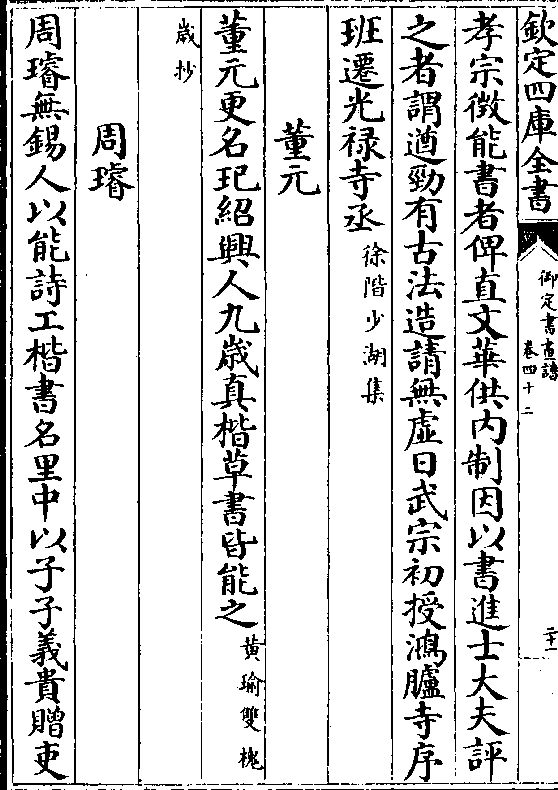 欽定四庫全書
御定書畫譜
卷四十二
二十一
孝宗徴能書者俾直文華供内制因以書進士大夫評
之者謂遒勁有古法造請無虚日武宗初授鴻臚寺序
班遷光禄寺丞徐階少湖集
董元
董元更名玘紹興人九歲真楷草書皆能之黄瑜雙槐
歲抄
周璿
周璿無錫人以能詩工楷書名里中以子子義貴贈吏